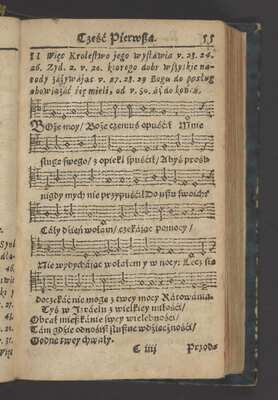 Część Pierwsza. 55
II Więc Krolestwo jego wystawia v. 23. 24.
26. Zyd. 2. v. 26. ktorego dobr wszytkie na-
rody zażywając v. 27. 28. 29 Bogu do posług
obowiązać się mieli, od v. 30. aż do końca.
BOże moy / Boże czemuś opuścił Mnie
sługę swego / z opieki spuścił / Abyś prośb
nigdy mych nie przypuścił Do uszu swoich?
Cały dzień wołam / czekając pomocy /
Nie wytychając wołałem y w nocy: Lecz się
doczekać nie mogę z twey mocy Ratowania.
Tyś w Izraelu z wielkiey miłości /
Obrał mieszkanie swey wielebności /
Tam gdzie odnosisz słuszne wdzięczności /
Godne twey chwały.
C iiij Przods